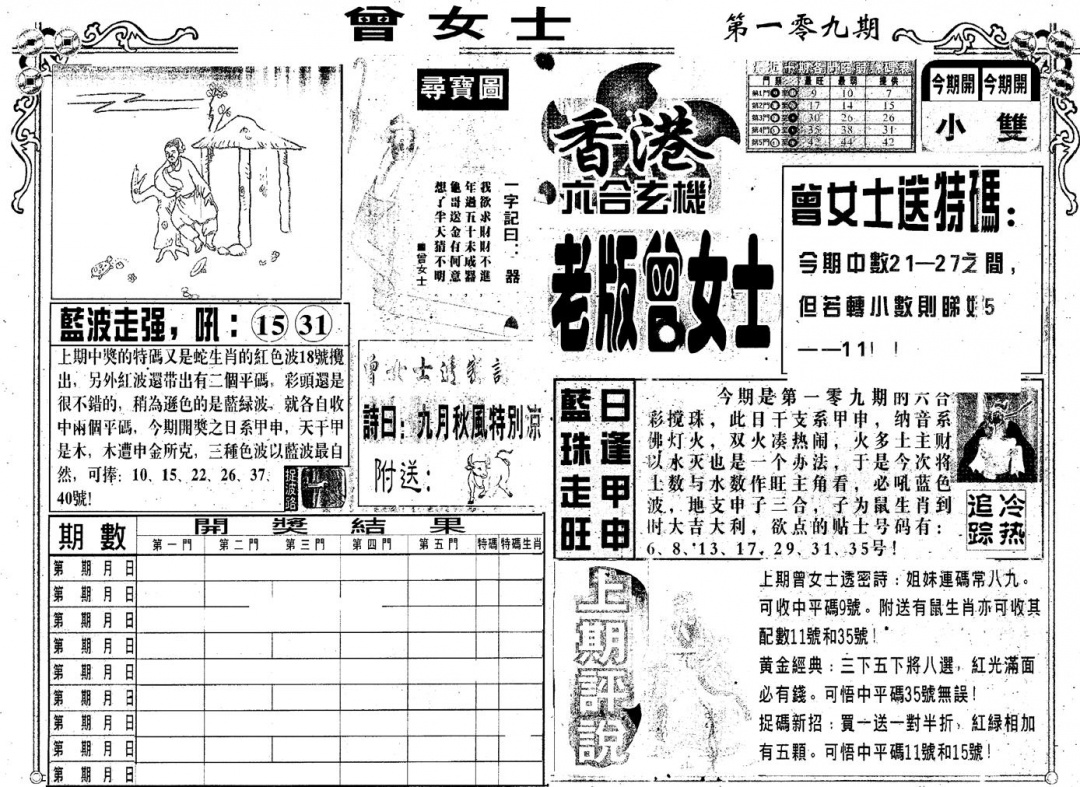 曾女士
第一零九期
尋寶圖
一字記曰：器
我欲求財財不進
年過五十未成器
龜哥送金有何意
想了半天猜不明
■曾女士
藍波走强，吼：15 31
上期中獎的特碼又是蛇生肖的紅色波18號攪
出，另外紅波還带出有二個平碼，彩頭還是
很不錯的，稍為遜色的是藍緑波，就各自收
中兩個平碼，今期開獎之日系甲申，天干甲
是木，木遭申金所克，三種色波以藍波最自
然，可捧：10、15、22、26、37、
40號！
詩曰：九月秋風特别凉
附送：
期數
開獎結果
第一門 第二門 第三門 第四門 第五門 特碼 特碼生肖
第 期 月 日
第 期 月 日
第 期 月 日
第 期 月 日
第 期 月 日
第 期 月 日
第 期 月 日
第 期 月 日
第 期 月 日
香港
六合玄機
老版曾女士
9 10 7
17 14 15
30 26 26
35 38 31
42 44 42
今期開 今期開
小 雙
曾女士送特碼：
今期中數21—27之間，
但若轉小數則睇好5
——11！！
藍珠走旺
日逢甲申
今期是第一零九期的六合
彩搅珠，此日干支系甲申，纳音系
佛灯火，双火凑热闹，火多土主财
以水灭也是一个办法，于是今次将
土数与水数作旺主角看，必吼蓝色
波，地支申子三合，子为鼠生肖到
时大吉大利，欲点的贴士号码有：
6、8、13、17、29、31、35号！
冷热
追踪
上期評説
上期曾女士透密詩：姐妹連碼常八九。
可收中平碼9號。附送有鼠生肖亦可收其
配數11號和35號！
黄金經典：三下五下將八選，紅光滿面
必有錢。可悟中平碼35號無誤！
捉碼新招：買一送一對半折，紅緑相加
有五顆。可悟中平碼11號和15號！